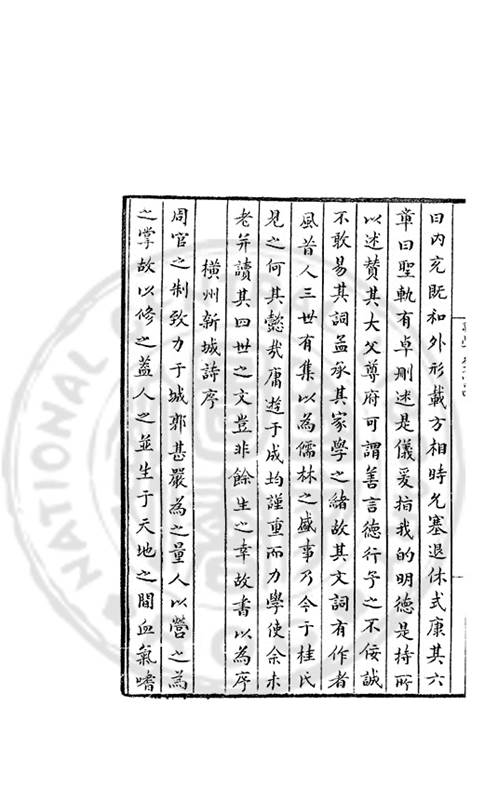 曰內充既和外形載方相時允塞退休式康其六
章曰聖軌有卓刪述是儀爰指我的明德是持所
以述贊其大父尊府可謂善言德行予之不佞誠
不敢易其詞葢承其家學之緒故其文詞有作者
風昔人三世有集以為儒林之盛事乃今于桂氏
見之何其懿哉庸遊于成均謹重而力學使余未
老并讀其四世之文豈非餘生之幸故書以為序
橫州新城詩序
周官之制致力于城郭甚嚴為之量人以營之為
之掌故以修之蓋人之並生于天地之間血氣嗜
NATIONAL